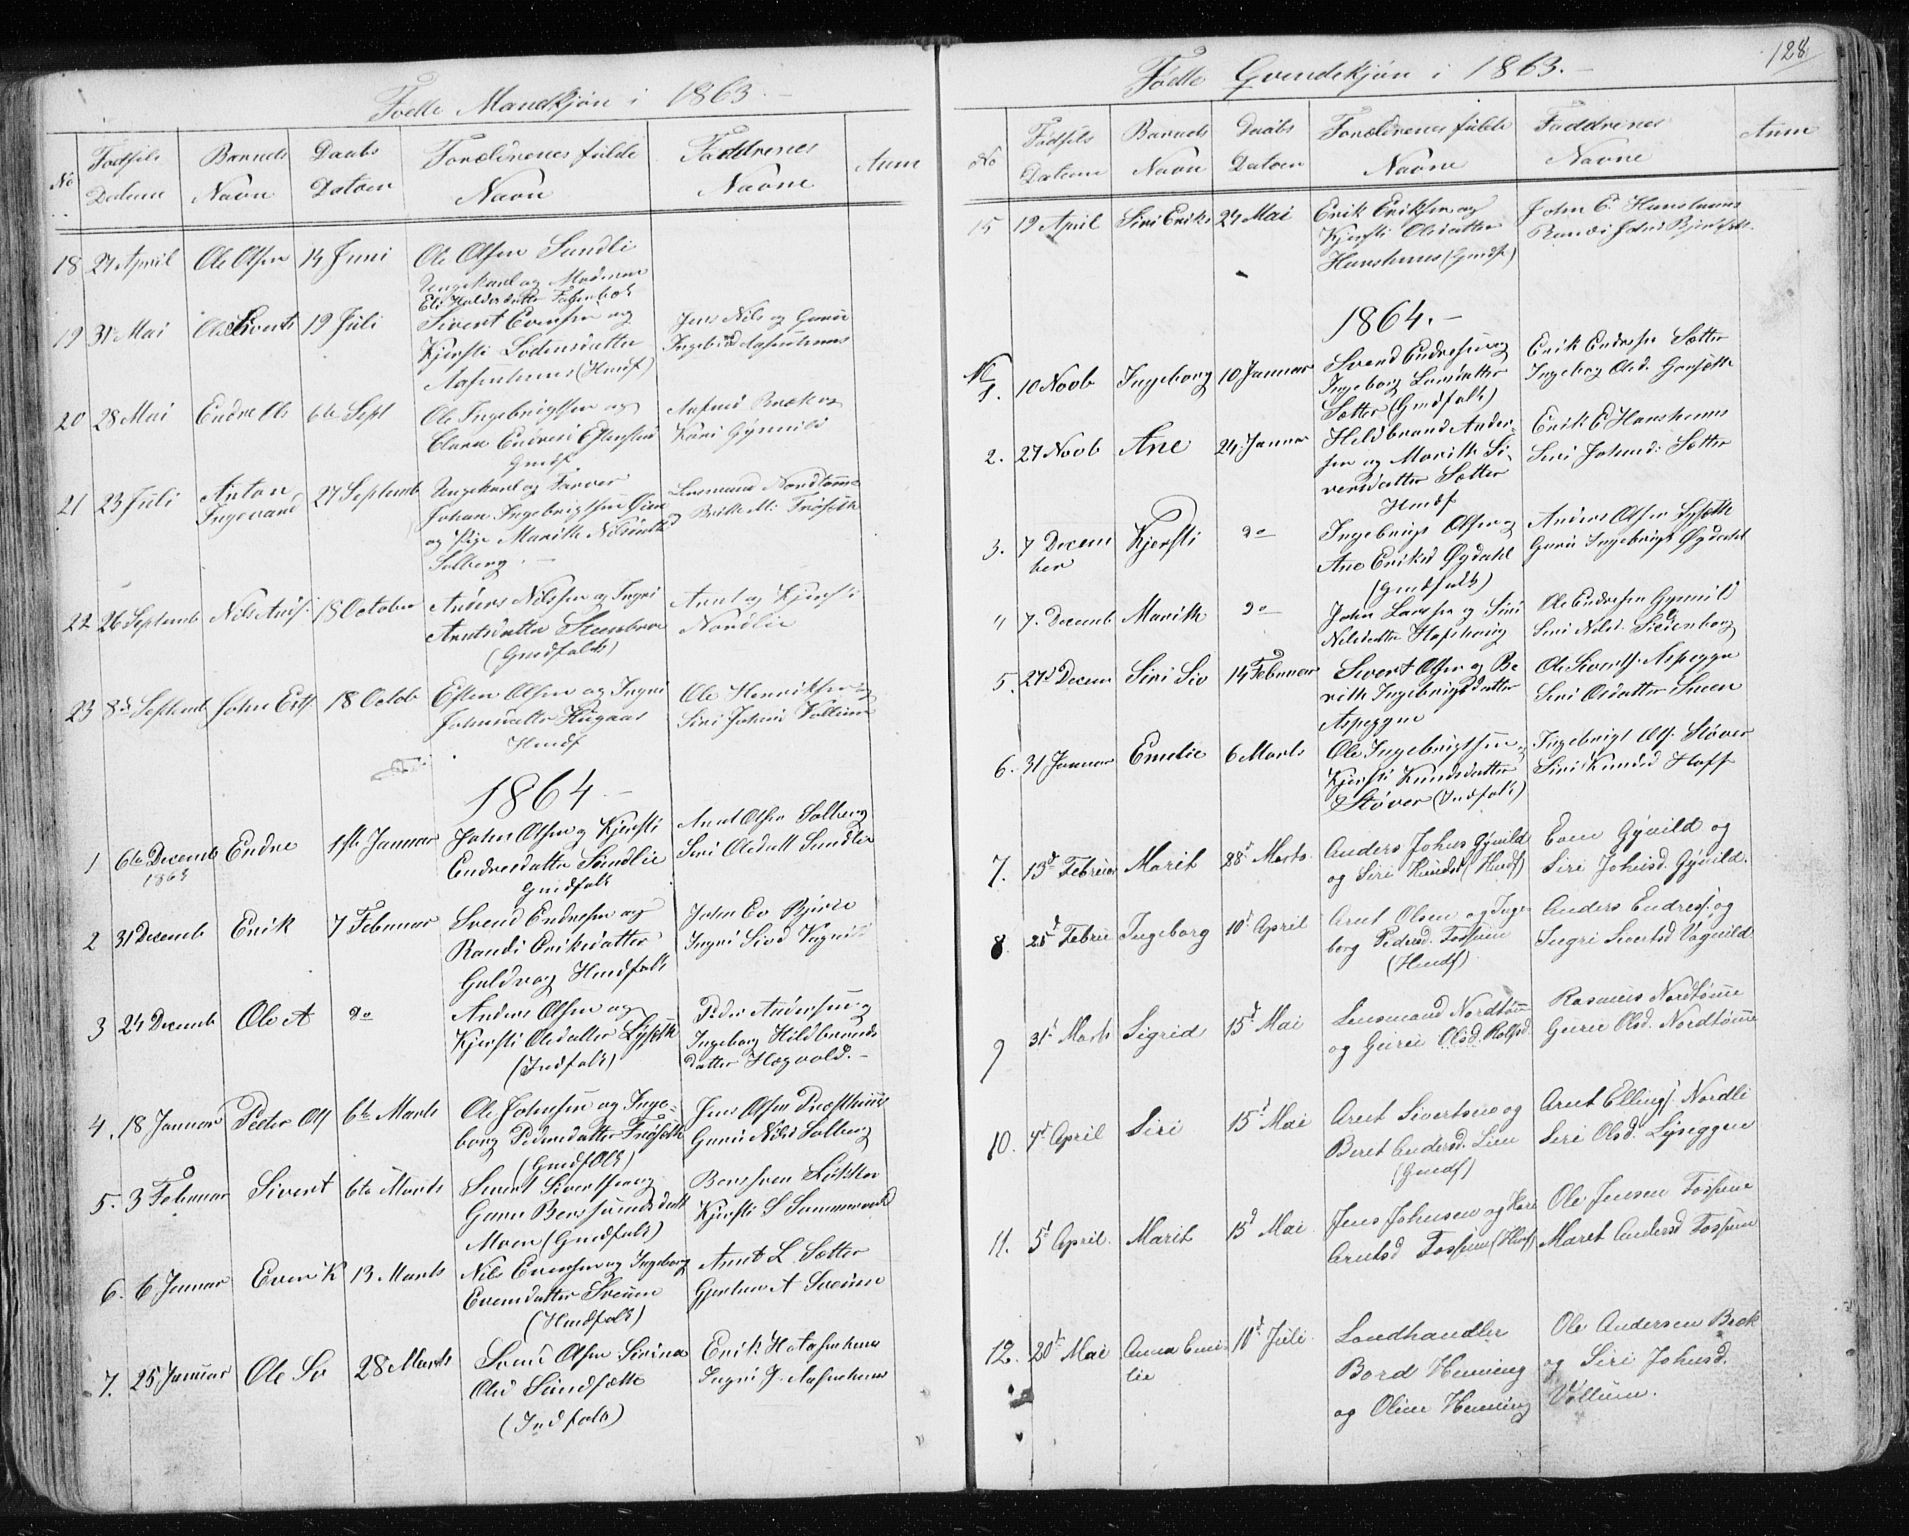 Fødte Mandkjøn i 1863.–
No
Fødsels Datum
Barnets Navn
Daabs Datoen
Forældrenes fulde Navn
Faddrenes Navne
Anm
18 27 April Ole Olsen 14 Juni Ole Olsen Sundli
Ungekarl og Moderen
Eli Haldosdatter
19 31 Mai Ole Siverts 19 Juli Sivert Evensen og
Kjersti Lodensdatter
Aasenhuus (Husf)
Jens Nils og Guruu
Ingebrid Aasenhuus
20 28 Mai Endre Ols 6te Sept Ole Ingebrigtsen og
Clara Endresd
Gmdf
Brek og
Kari Gynnild
21 23 Juli Anton Ingevard 27 Septemb Ungekarl og Farver
Johan Ingebrigtsen
og Pige Marith Nilsdatter
Solberg.–
Lensmand Nordtømme
og Berith M: Frøseth
22 26 Septemb Nils Ands: 18 October Anders Nilssen og Ingri
Arntsdatter Steenbroe
(Gmdfolk)
Arnt og Kjersti
Nordlie
23 8de Septemb John Ests 18 Octob Esten Olsen og Ingri
Johnsdatter Haugaas
Husf
Ole Henriksen og
Siri Johnsd Vollum
1864.–
1 6te Decemb 1863 Endre 1ste Januar John Olsen og Kjersti
Endresdatter Sundlie
Gmdfolk
Arnt Olsen Solberg
Siri Olsdatt Sundlie
2 31 Decemb Erik 7 Februar Svend Endresen og
Randi Eriksdatter
Guldvog Husfolk
John Ev Bjerke
Ingri Sivd Vognild
3 24 Decemb Ole A do Anders Olsen og
Kjersti Olsdatter Lyseth
(Indfolk)
Peder Andersen og
Ingeborg Hildbrands
datter Hægvold.–
4. 18 Januar Peder Ols 6te Marts Ole Johnsen og Inge-
borg Pedersdatter Frøseth
(Gmdfolk)
Jens Olsen Præsthuus
Guruu Nilsd Solberg
5. 3 Februar Sivert 6te Marts Sivert Sivertsen og
Guru Berssvendsdatt
Moen (Gmdfolk)
Bersven Løkken
Kjersti S
6. 6 Januar Even K 13 Marts Nils Evensen og Ingeborg
Evensdatter Sveum
(Husfolk)
Arnt L Sætter
Gjertrue A Sveum
7. 25 Januar Ole Sv 28 Marts Svend Olsen Sirina
Olsd Sundsætte
(Indfolk)
Erik H Aasenhuus
Ingri J. Aasenhuus
128
Fødte Qvindekjøn i 1863.–
No
Fødsels Datum
Barnets Navn
Daabs Datoen
Forældrenes fulde Navne
Faddrenes Navne
Anm
15 19 April Siri Eriks 24 Mai Erik Eriksen og
Kjersti Olsdatter
Hanshuus (Gmdf)
John E Hanshuus
Randi Johnsd
1864.–
No
1. 10 Novb Ingeborg 10 Januar Svend Endresen og
Ingeborg Larsdatter
Sætter (Gmdfolk)
Erik Endresen Sætter
Ingeborg Olsd.
2. 27 Novb Ane 24. Januar Hildbrand Ander-
sen og Marith Si-
versdatter Sætter
Husf
Erik E Hanshuus
Siri Johnsd: Sætter
3. 7 Decem ber Kjersti do Ingebrigt Olsen og
Ane Eriksd Øgdahl
(Gmdfolk)
Anders Olsen Lyseth
Guru Ingebrigts Øgdahl
" 7. Decemb Marith do John Larsen og Siri
Nilsdatter
Ole Endresen Gynnild
Siri Nilsd.
5. 27d Decem Siri Siv 14 Februar Sivert Olsen og Be
rith Ingebrigtsdatter
Aspeggen
Ole Siverts. Aspeggn
Siri Olsdatter Sveen
6. 31 Januar Emelie 6 Marts Ole Ingebrigtsen og
Kjersti Knudsdatter
Støver (Indfolk)
Ingebrigt Ols: Støver
Siri Knudsd Hoff
7. 13d Februar Marit 28d Marts. Anders Johns Gynild
og Siri Knudsd (Husf)
Even Gynild og
Siri Johnsd. Gynild.
8. 25d Febru Ingeborg 10d April Arnt Olsen og Inge
borg Pedersd. Fossum
(Husf)
Anders Endress. og
Ingri Sivertsd Vognild
9 31d Marts Sigrid 15d Mai Lensmand Nordtømme
og Gurie Olsd. Rolfsd
Rasmus Nordtømme
Gurie Olsd. Nordtømme
10. 4d April Siri 15d Mai Arnt Sivertsen og
Beret Andersd. Lien
(Gmdf)
Arnt Ellings. Nordli
Siri Olsd. Lynggen
11. 5d April. Marit 15d Mai Jens Johnsen og Kari
Arntsd Fossum (Husf)
Ole Jensen Fossum
Maret Andersd Fossum
12. 20d Mai Anna Emi- lie 10d Juli Landhandler
Bord Henning
og Oline Henning
Ole Andersen Brek
og Siri Johnsd.
Vollum.